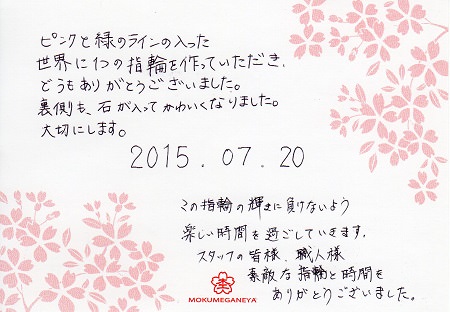 ピンクと緑のラインの入った
世界に1つの指輪を作っていただき、
どうもありがとうございました。
裏側も、石が入ってかわいくなりました。
大切にします。
2015.07.20
この指輪の輝きに負けないよう
楽しい時間を過ごしていきます。
スタッフの皆様、職人様
素敵な指輪と時間を
ありがとうございました。
MOKUMEGANEYA